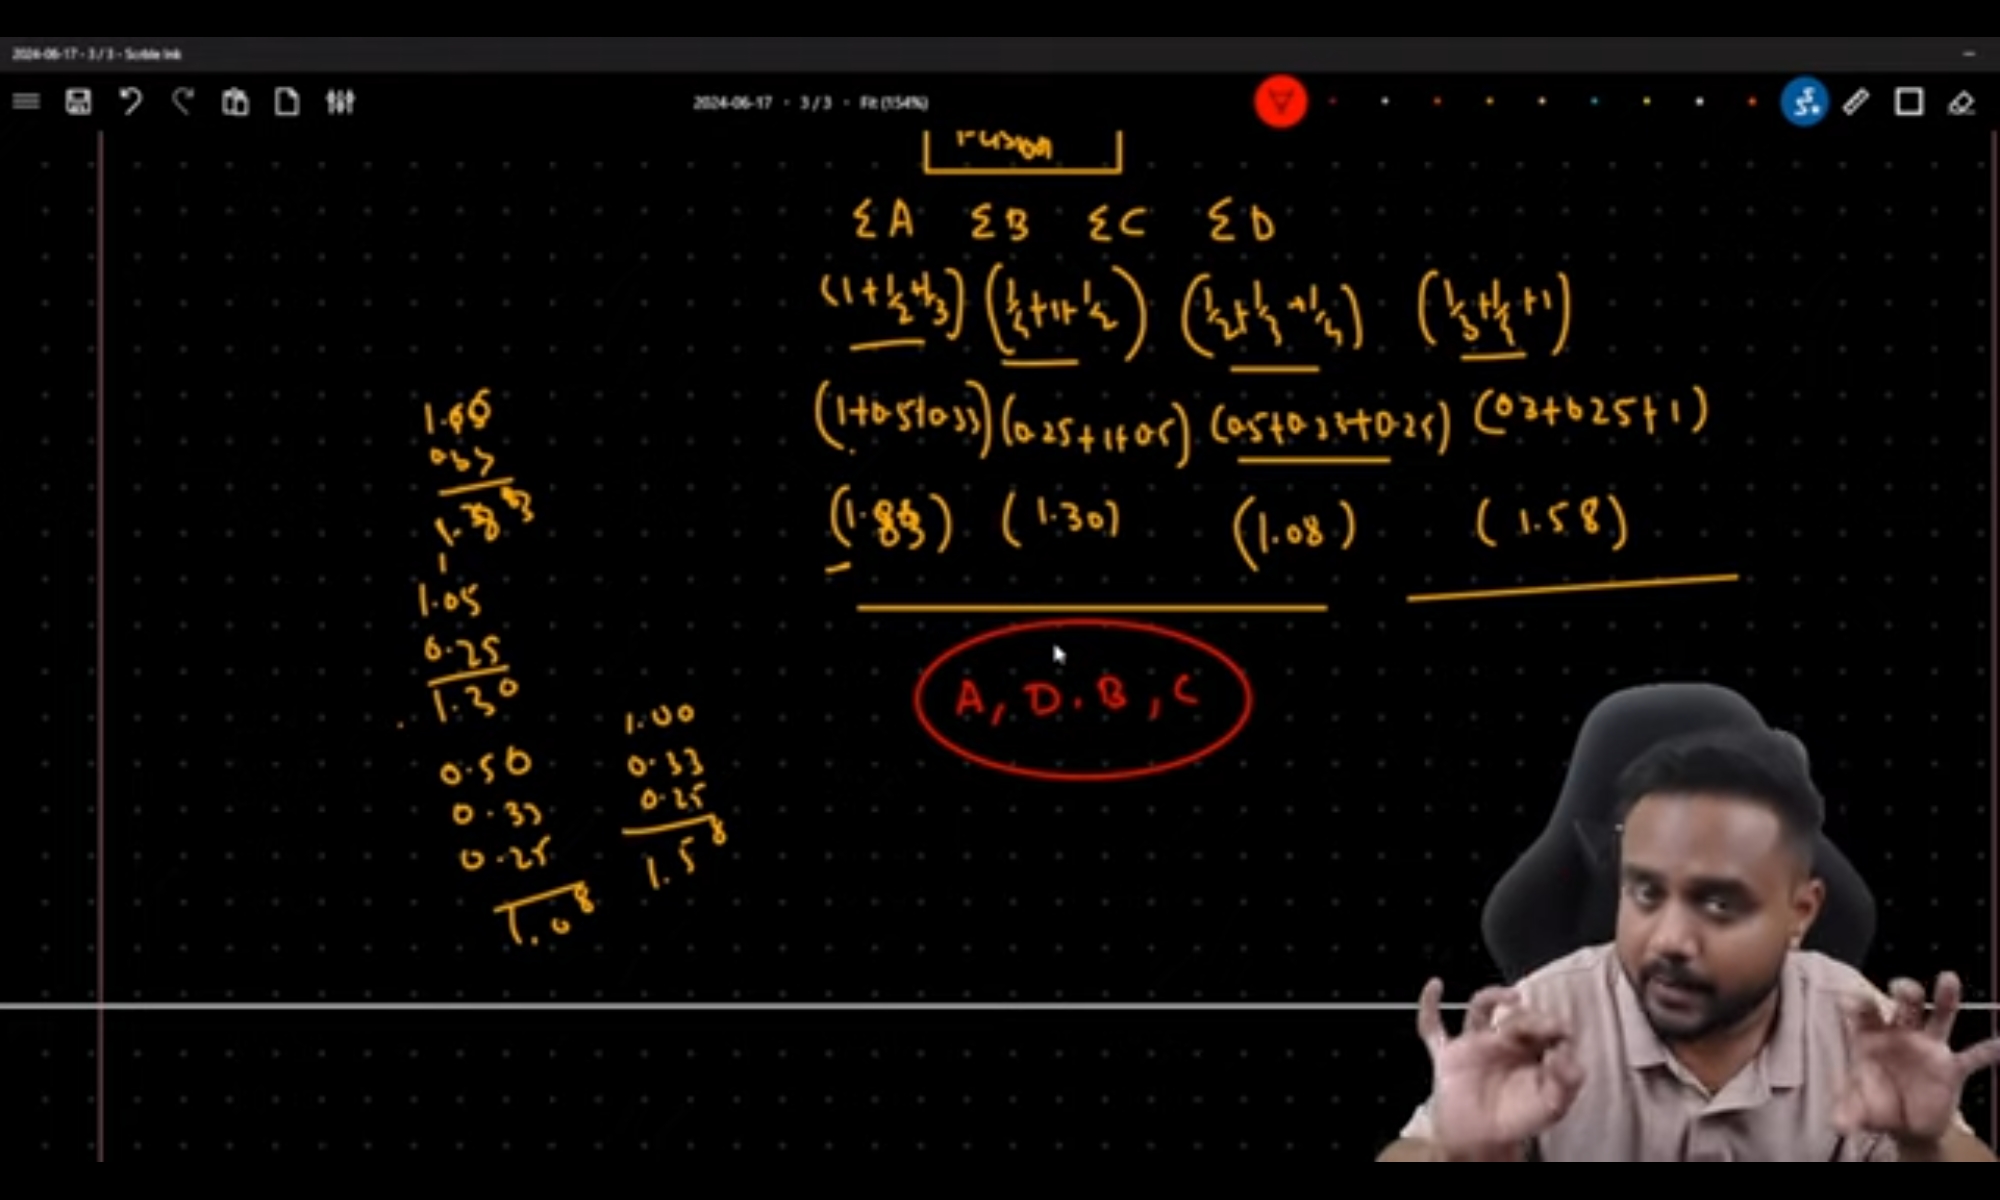 2024-06-17 - 3 / 3 - Scrible Ink
2024-06-17 • 3 / 3 • Fit (154%)
Fusion
ΣA ΣB ΣC ΣD
(1+1/2+1/3) (1/4+1+1/2) (1/2+1/3+1/4) (1/3+1/4+1)
(1+0.5+0.33) (0.25+1+0.5) (0.5+0.33+0.25) (0.3+0.25+1)
(1.83) (1.30) (1.08) (1.58)
A, D. B, C
0.33
1
1.05
0.25
1.30
0.50
0.33
0.25
1.08
1.00
0.33
0.25
1.58